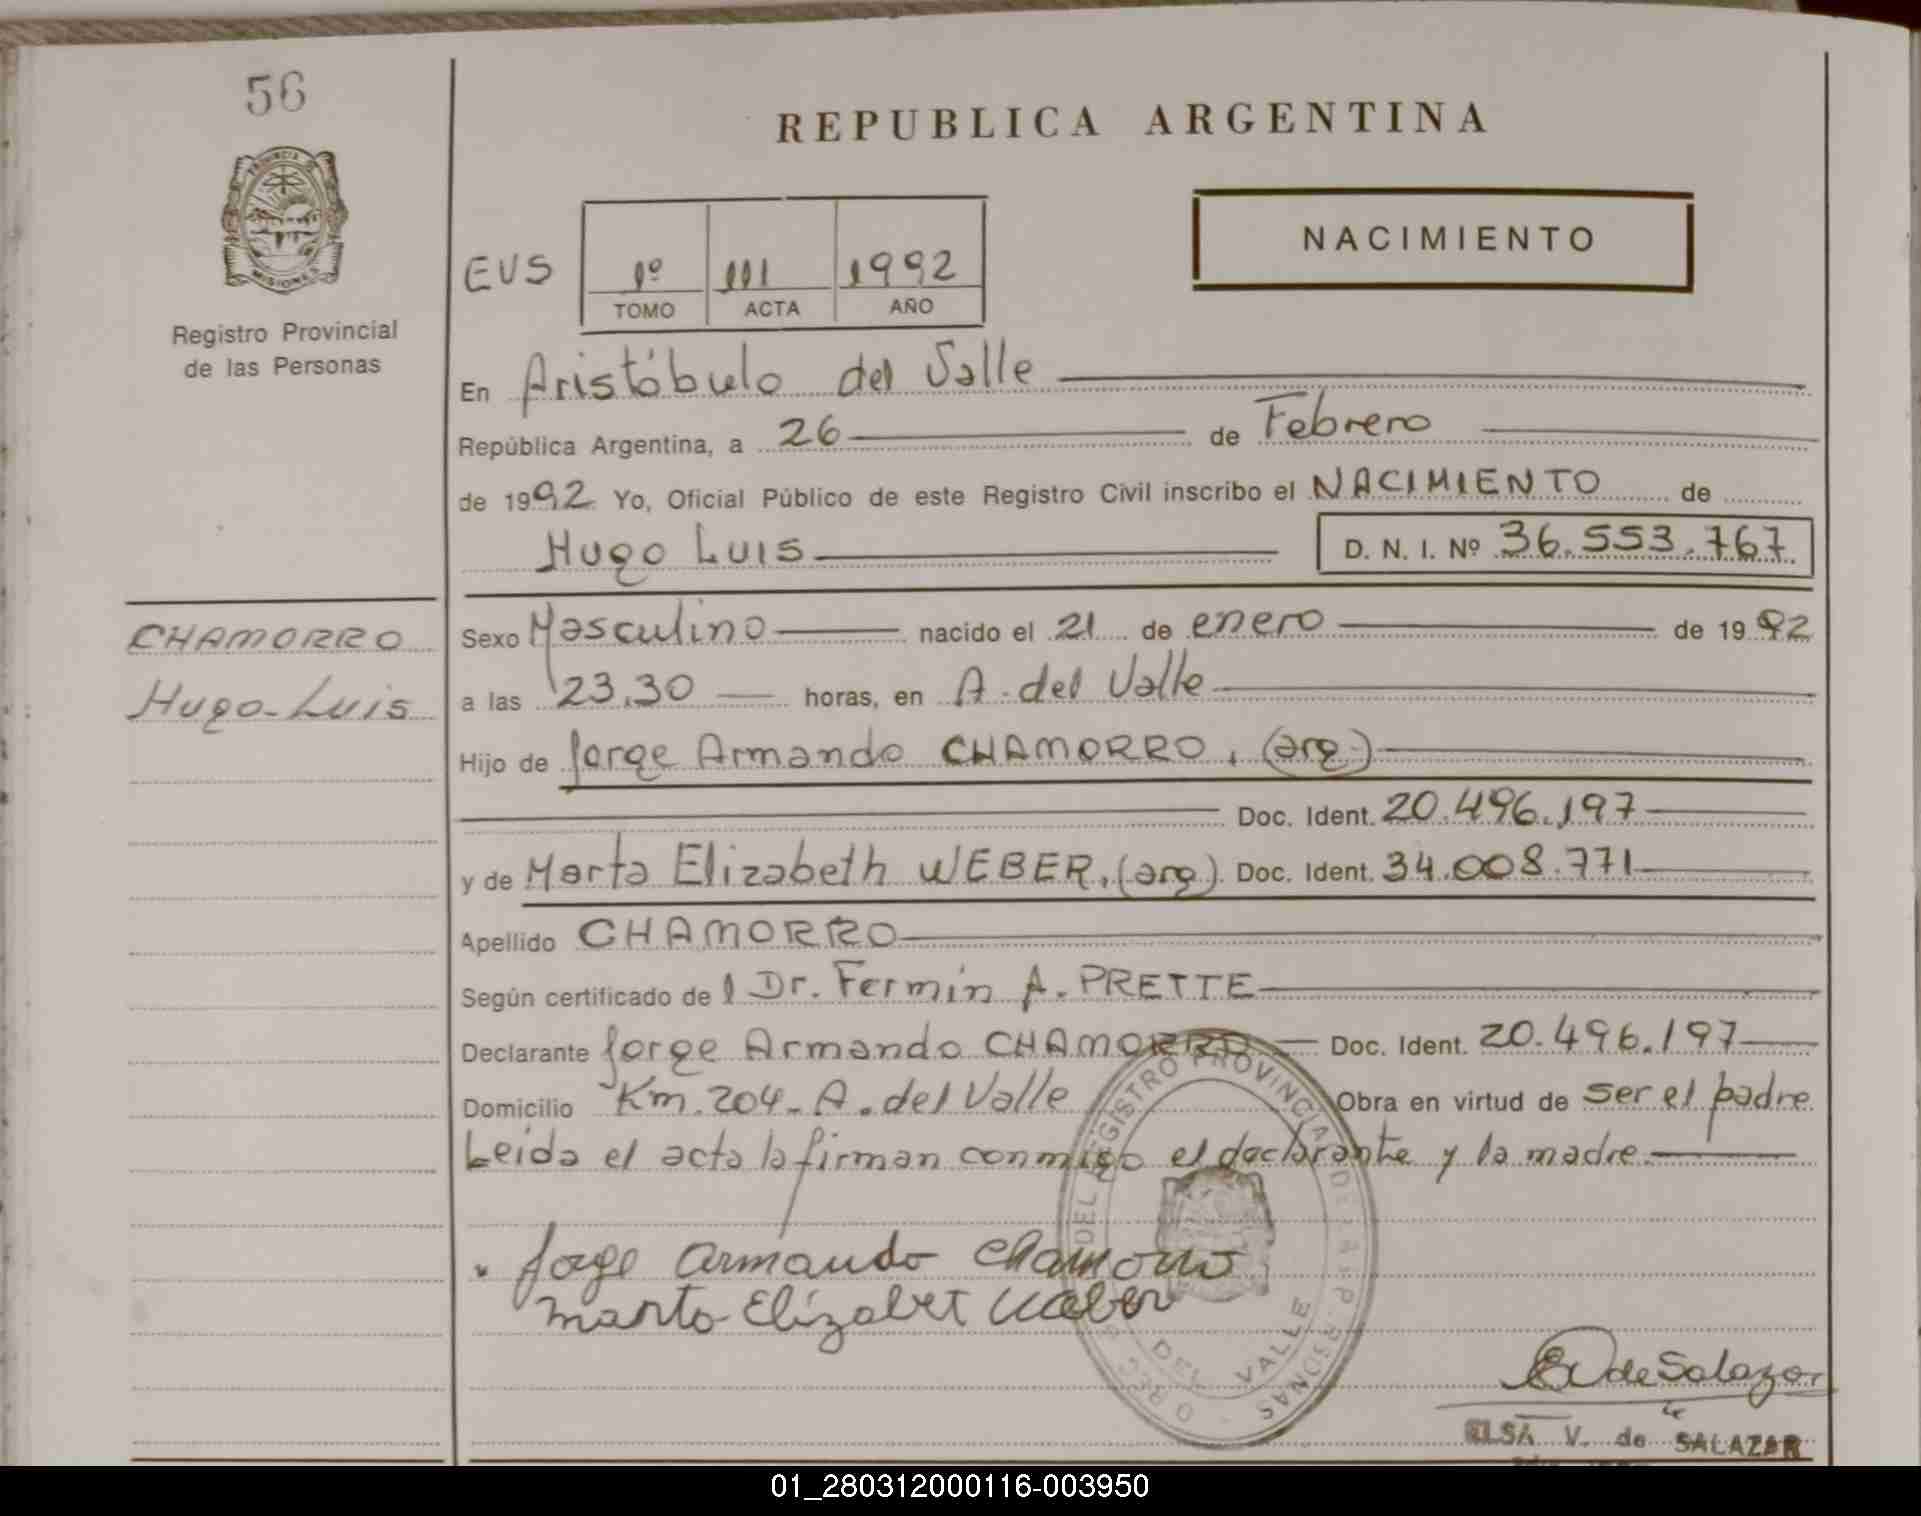 56
PROVINCIA DE
MISIONES
Registro Provincial
de las Personas
CHAMORRO
Hugo Luis
REPUBLICA ARGENTINA
NACIMIENTO
EVS
1º 111 1992
TOMO ACTA AÑO
En Aristóbulo del Valle
República Argentina, a 26 de Febrero
de 1992 Yo, Oficial Público de este Registro Civil inscribo el NACIMIENTO de
Hugo Luis D. N. I. Nº 36.553.767
Sexo Masculino nacido el 21 de enero de 1992
a las 23,30 horas, en A. del Valle
Hijo de Jorge Armando CHAMORRO, (arg)
Doc. Ident. 20.496.197
y de Marta Elizabeth WEBER, (arg) Doc. Ident. 34.008.771
Apellido CHAMORRO
Según certificado del Dr. Fermín A. PRETTE
Declarante Jorge Armando CHAMORRO Doc. Ident. 20.496.197
Domicilio Km. 204 - A. del Valle Obra en virtud de ser el padre
Leida el acta la firman conmigo el declarante y la madre
Jorge Armando Chamorro
Marta Elizabet Weber
DEL REGISTRO PROVINCIAL DE LAS PERSONAS
DEL VALLE
E V de Salazar
ELSA V. de SALAZAR
01_280312000116-003950